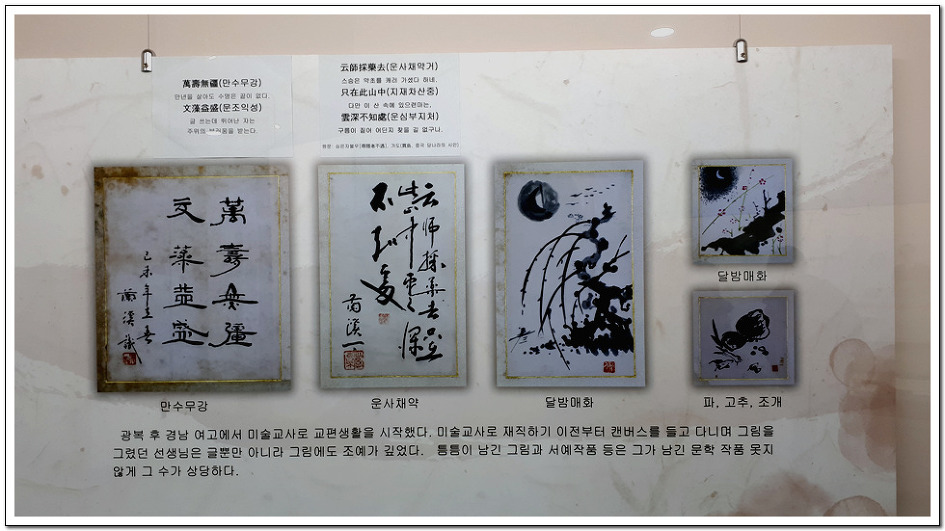 萬壽無疆(만수무강)
만년을 살아도 수명은 끝이 없다.
文藻益盛(문조익성)
글 쓰는데 뛰어난 자는
주위의 부러움을 받는다.
云師採藥去(운사채약거)
스승은 약초를 캐러 가셨다 하네.
只在此山中(지재차산중)
다만 이 산 속에 있으련마는,
雲深不知處(운심부지처)
구름이 깊어 어딘지 찾을 길 없구나.
萬壽無疆
文藻益盛
己未年立春
云師採藥去只在
此山中雲深
不知處
만수무강
운사채약
달밤매화
달밤매화
파, 고추, 조개
광복 후 경남 여고에서 미술교사로 교편생활을 시작했다. 미술교사로 재직하기 이전부터 캔버스를 들고 다니며 그림을
그렸던 선생님은 글뿐만 아니라 그림에도 조예가 깊었다. 틈틈이 남긴 그림과 서예작품 등은 그가 남긴 문학 작품 못지
않게 그 수가 상당하다.